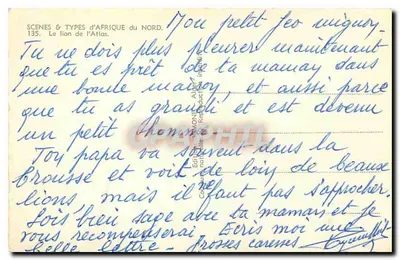 SCENES & TYPES d'AFRIQUE du NORD.
135. Le lion de l'Atlas.
Mon petit Jeo mignon.
Tu ne dois plus pleurer maintenant
que tu es prêt de ta maman dans
une bonne maison, et aussi parce
que tu as grandi et est devenu
un petit homme.
Ton papa va souvent dans la
brousse et voit de loin de beaux
lions, mais il ne faut pas s'approcher.
Sois bien sage avec ta maman et je
vous recompenserai. Ecris moi une
belle lettre. Grosses caresses